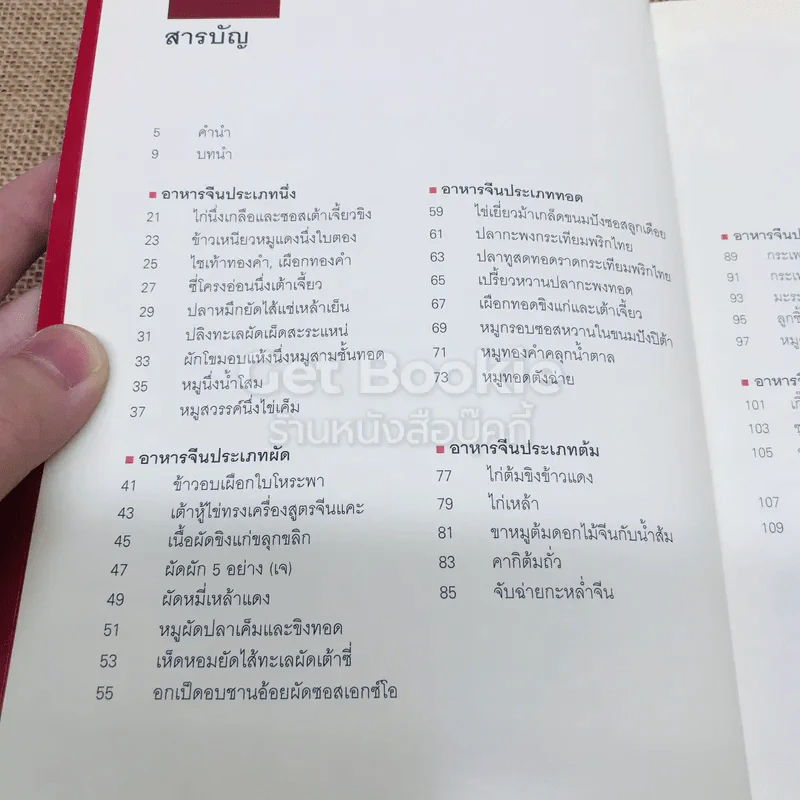 สารบัญ
5 คำนำ
9 บทนำ
อาหารจีนประเภทนึ่ง
21 ไก่นึ่งเกลือและซอสเต้าเจี้ยวขิง
23 ข้าวเหนียวหมูแดงนึ่งใบตอง
25 ไชเท้าทองคำ, เผือกทองคำ
27 ซี่โครงอ่อนนึ่งเต้าเจี้ยว
29 ปลาหมึกยัดไส้แช่เหล้าเย็น
31 ปลิงทะเลผัดเผ็ดสะระแหน่
33 ผักโขมอบแห้งนึ่งหมูสามชั้นทอด
35 หมูนึ่งน้ำโสม
37 หมูสวรรค์นึ่งไข่เค็ม
อาหารจีนประเภทผัด
41 ข้าวอบเผือกใบโหระพา
43 เต้าหู้ไข่ทรงเครื่องสูตรจีนแคะ
45 เนื้อผัดขิงแก่ขลุกขลิก
47 ผัดผัก 5 อย่าง (เจ)
49 ผัดหมี่เหล้าแดง
51 หมูผัดปลาเค็มและขิงทอด
53 เห็ดหอมยัดไส้ทะเลผัดเต้าซี่
55 อกเป็ดอบชานอ้อยผัดซอสเอกซ์โอ
อาหารจีนประเภททอด
59 ไข่เยี่ยวม้าเกล็ดขนมปังซอสลูกเดือย
61 ปลากะพงกระเทียมพริกไทย
63 ปลาทูสดทอดราดกระเทียมพริกไทย
65 เปรี้ยวหวานปลากะพงทอด
67 เผือกทอดขิงแก่และเต้าเจี้ยว
69 หมูกรอบซอสหวานในขนมปังปิต้า
71 หมูทองคำคลุกน้ำตาล
73 หมูทอดตังฉ่าย
อาหารจีนประเภทต้ม
77 ไก่ต้มขิงข้าวแดง
79 ไก่เหล้า
81 ขาหมูต้มดอกไม้จีนกับน้ำส้ม
83 คากิต้มถั่ว
85 จับฉ่ายกะหล่ำจีน
อาหารจีนป
89 กระเพ
91 กระเพ
93 มะระ
95 ลูกชิ้
97 หมู
อาหารจีน
101
103
105
107
109
Get Bookie
ร้านหนังสือบุ๊คกี้